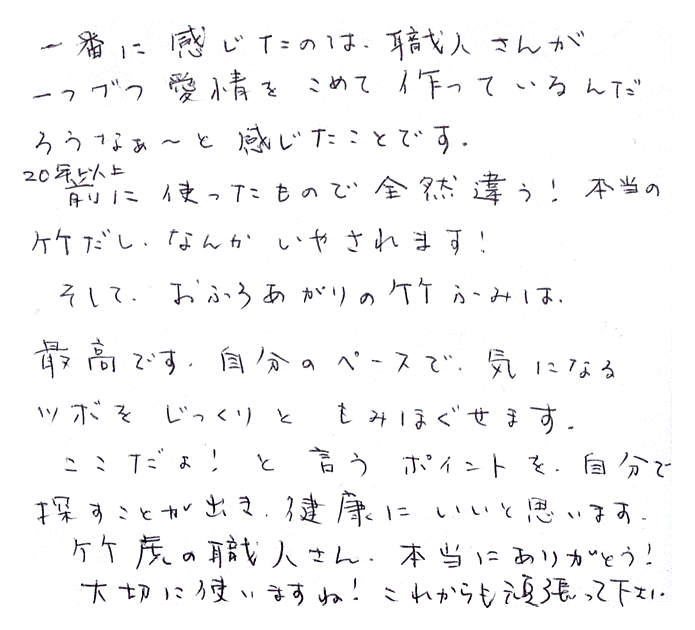 一番に感じたのは、職人さんが
一つづつ愛情をこめて作っているんだ
ろうなぁ～と感じたことです。
20年以上
前に使ったもので全然違う！本当の
竹だし、なんかいやされます！
そして、おふろあがりの竹ふみは、
最高です。自分のペースで、気になる
ツボをじっくりともみほぐせます。
ここだょ！と言うポイントを、自分で
探すことが出き、健康にいいと思います。
竹虎の職人さん、本当にありがとう！
大切に使いますね！これからも頑張って下さい